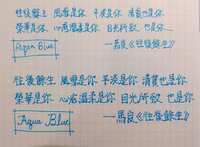 往後餘生 風雪是你 平淡是你 清貧也是你
榮華是你 心底溫柔是你 目光所致 也是你
Aqua Blue
—馬良《往後餘生》
往後餘生 風雪是你 平淡是你 清貧也是你
榮華是你 心底溫柔是你 目光所致 也是你
Aqua Blue
—馬良《往後餘生》